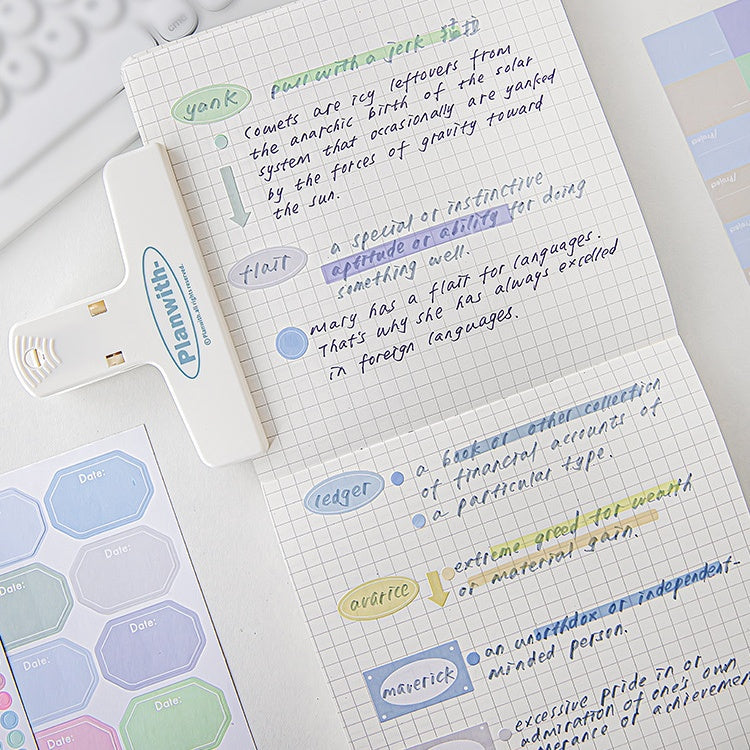 yank
pull with a jerk 猛拉
Comets are icy leftovers from
the anarchic birth of the solar
system that occasionally are yanked
by the forces of gravity toward
the sun.
flair
a special or instinctive
aptitude or ability for doing
something well.
Mary has a flair for languages.
That's why she has always excelled
in foreign languages.
ledger
a book or other collection
of financial accounts of
a particular type.
avarice
extreme greed for wealth
or material gain.
maverick
an unorthdox or independent-
minded person.
excessive pride in or
admiration of one's own
or achievemen
Planwith-
©Planwith.all rights reserved.
Date:
Date:
Date:
Date:
Date:
Date:
Project
Project
Project
cmd